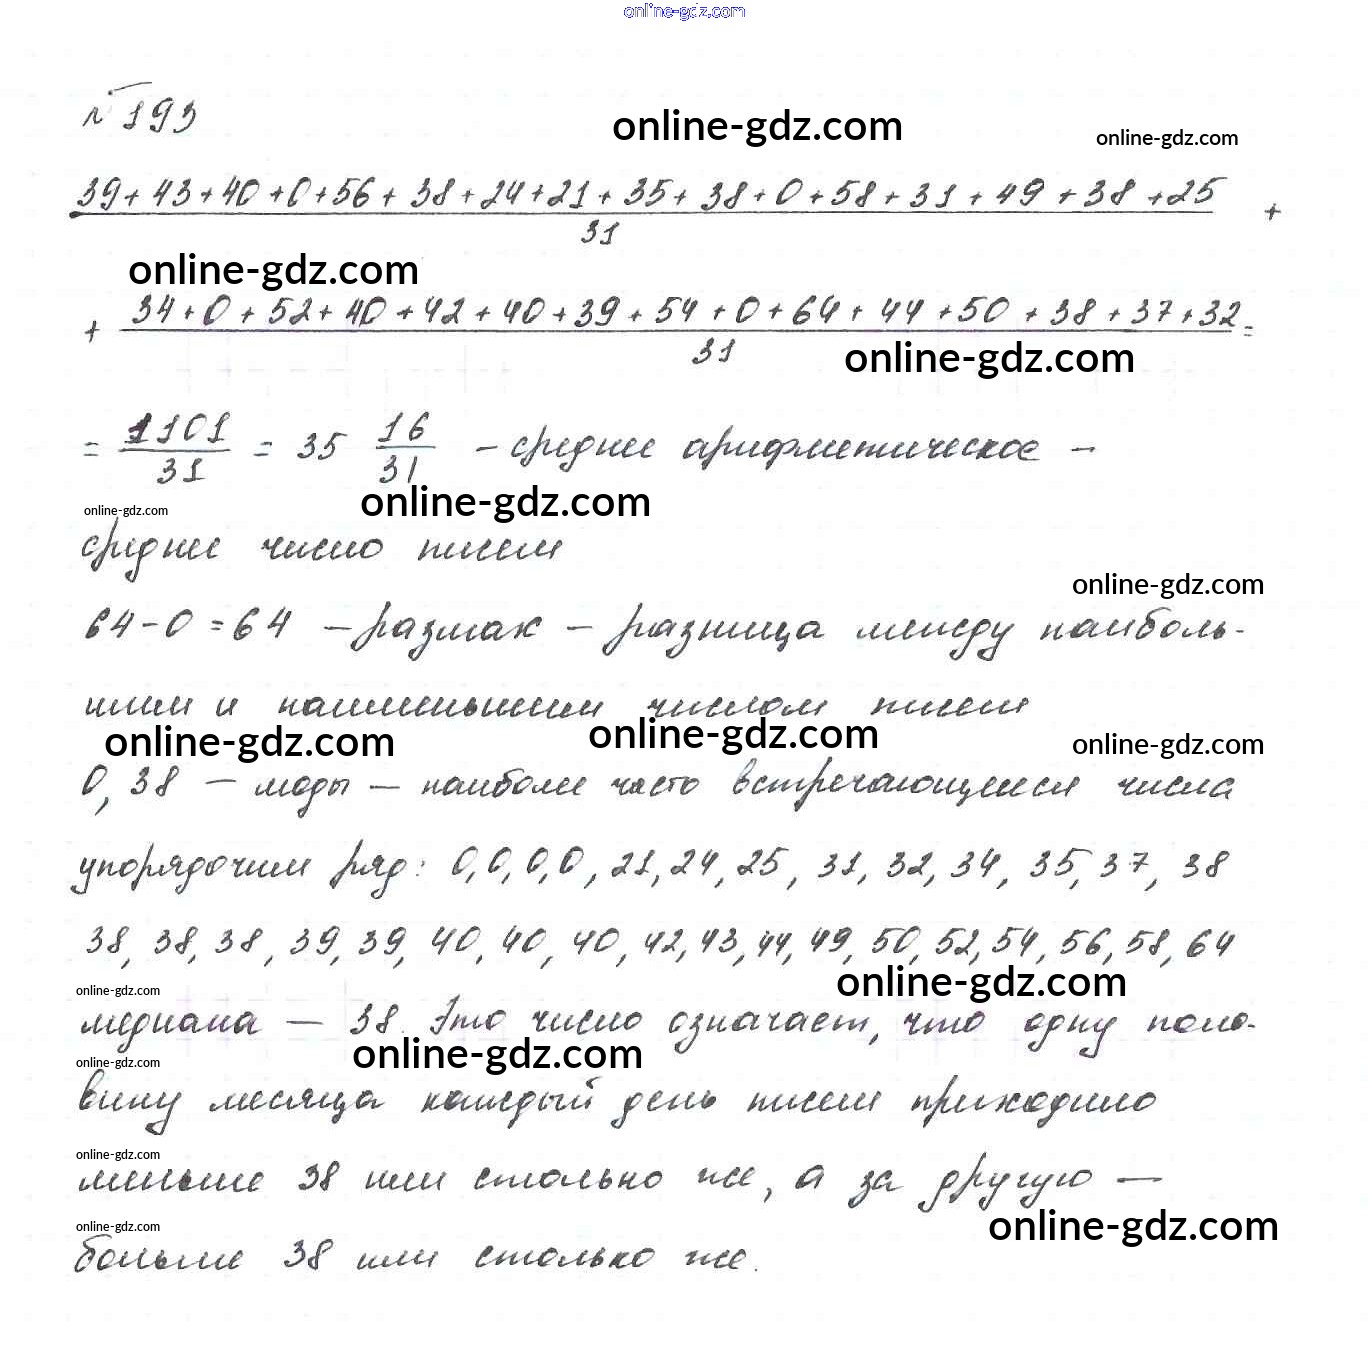 online-gdz.com
№193
online-gdz.com
online-gdz.com
39+43+40+0+56+38+24+21+35+38+0+58+31+49+38+25 +
31
online-gdz.com
+ 34+0+52+40+42+40+39+54+0+64+44+50+38+37+32 =
31
online-gdz.com
= 1101/31 = 35 16/31 - среднее арифметическое -
online-gdz.com
online-gdz.com
среднее число писем
online-gdz.com
64-0=64 - размах - разница между наиболь-
шим и наименьшим числом писем
online-gdz.com
online-gdz.com
online-gdz.com
0, 38 - моды - наиболее часто встречающиеся числа
упорядочим ряд: 0, 0, 0, 0, 21, 24, 25, 31, 32, 34, 35, 37, 38
38, 38, 38, 39, 39, 40, 40, 40, 42, 43, 44, 49, 50, 52, 54, 56, 58, 64
online-gdz.com
online-gdz.com
медиана - 38. Это число означает, что одну поло-
online-gdz.com
online-gdz.com
вину месяца каждый день писем приходило
online-gdz.com
меньше 38 или столько же, а за другую -
online-gdz.com
online-gdz.com
больше 38 или столько же.